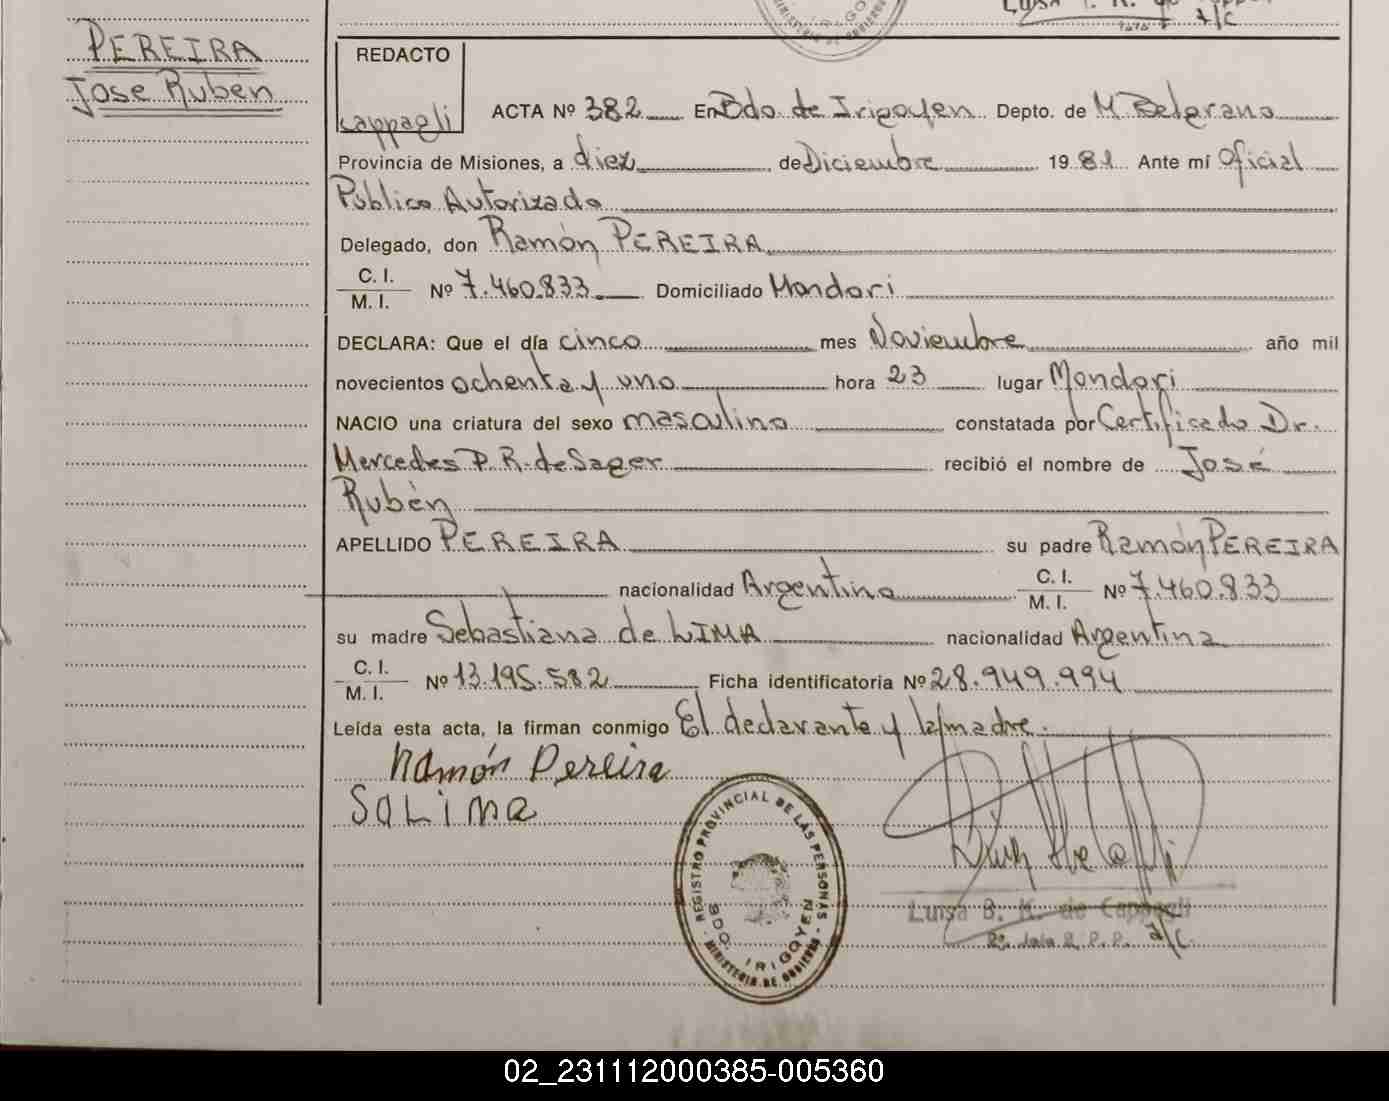 PEREIRA
Jose Rubén
REDACTO
Cappagli
ACTA Nº 382 En Bdo. de Irigoyen Depto. de M. Belgrano
Provincia de Misiones, a diez de Diciembre 1981 Ante mí Oficial
Público Autorizado
Delegado, don Ramón PEREIRA
C. I.
M. I. Nº 7.460.833 Domiciliado Mondori
DECLARA: Que el día cinco mes Noviembre año mil
novecientos ochenta y uno hora 23 lugar Mondori
NACIO una criatura del sexo masculino constatada por Certificado Dr.
Mercedes P. R. de Sager recibió el nombre de José
Rubén
APELLIDO PEREIRA su padre Ramón PEREIRA
nacionalidad Argentino C. I. M. I. Nº 7.460.833
su madre Sebastiana de LIMA nacionalidad Argentina
C. I.
M. I. Nº 13.195.582 Ficha identificatoria Nº 28.949.994
Leída esta acta, la firman conmigo El declarante y la madre.
Ramón Pereira
SaLima
REGISTRO PROVINCIAL DE LAS PERSONAS
BDO. IRIGOYEN
MINISTERIO DE GOBIERNO
Luisa B. K. de Cappagli
a/c.
02_231112000385-005360